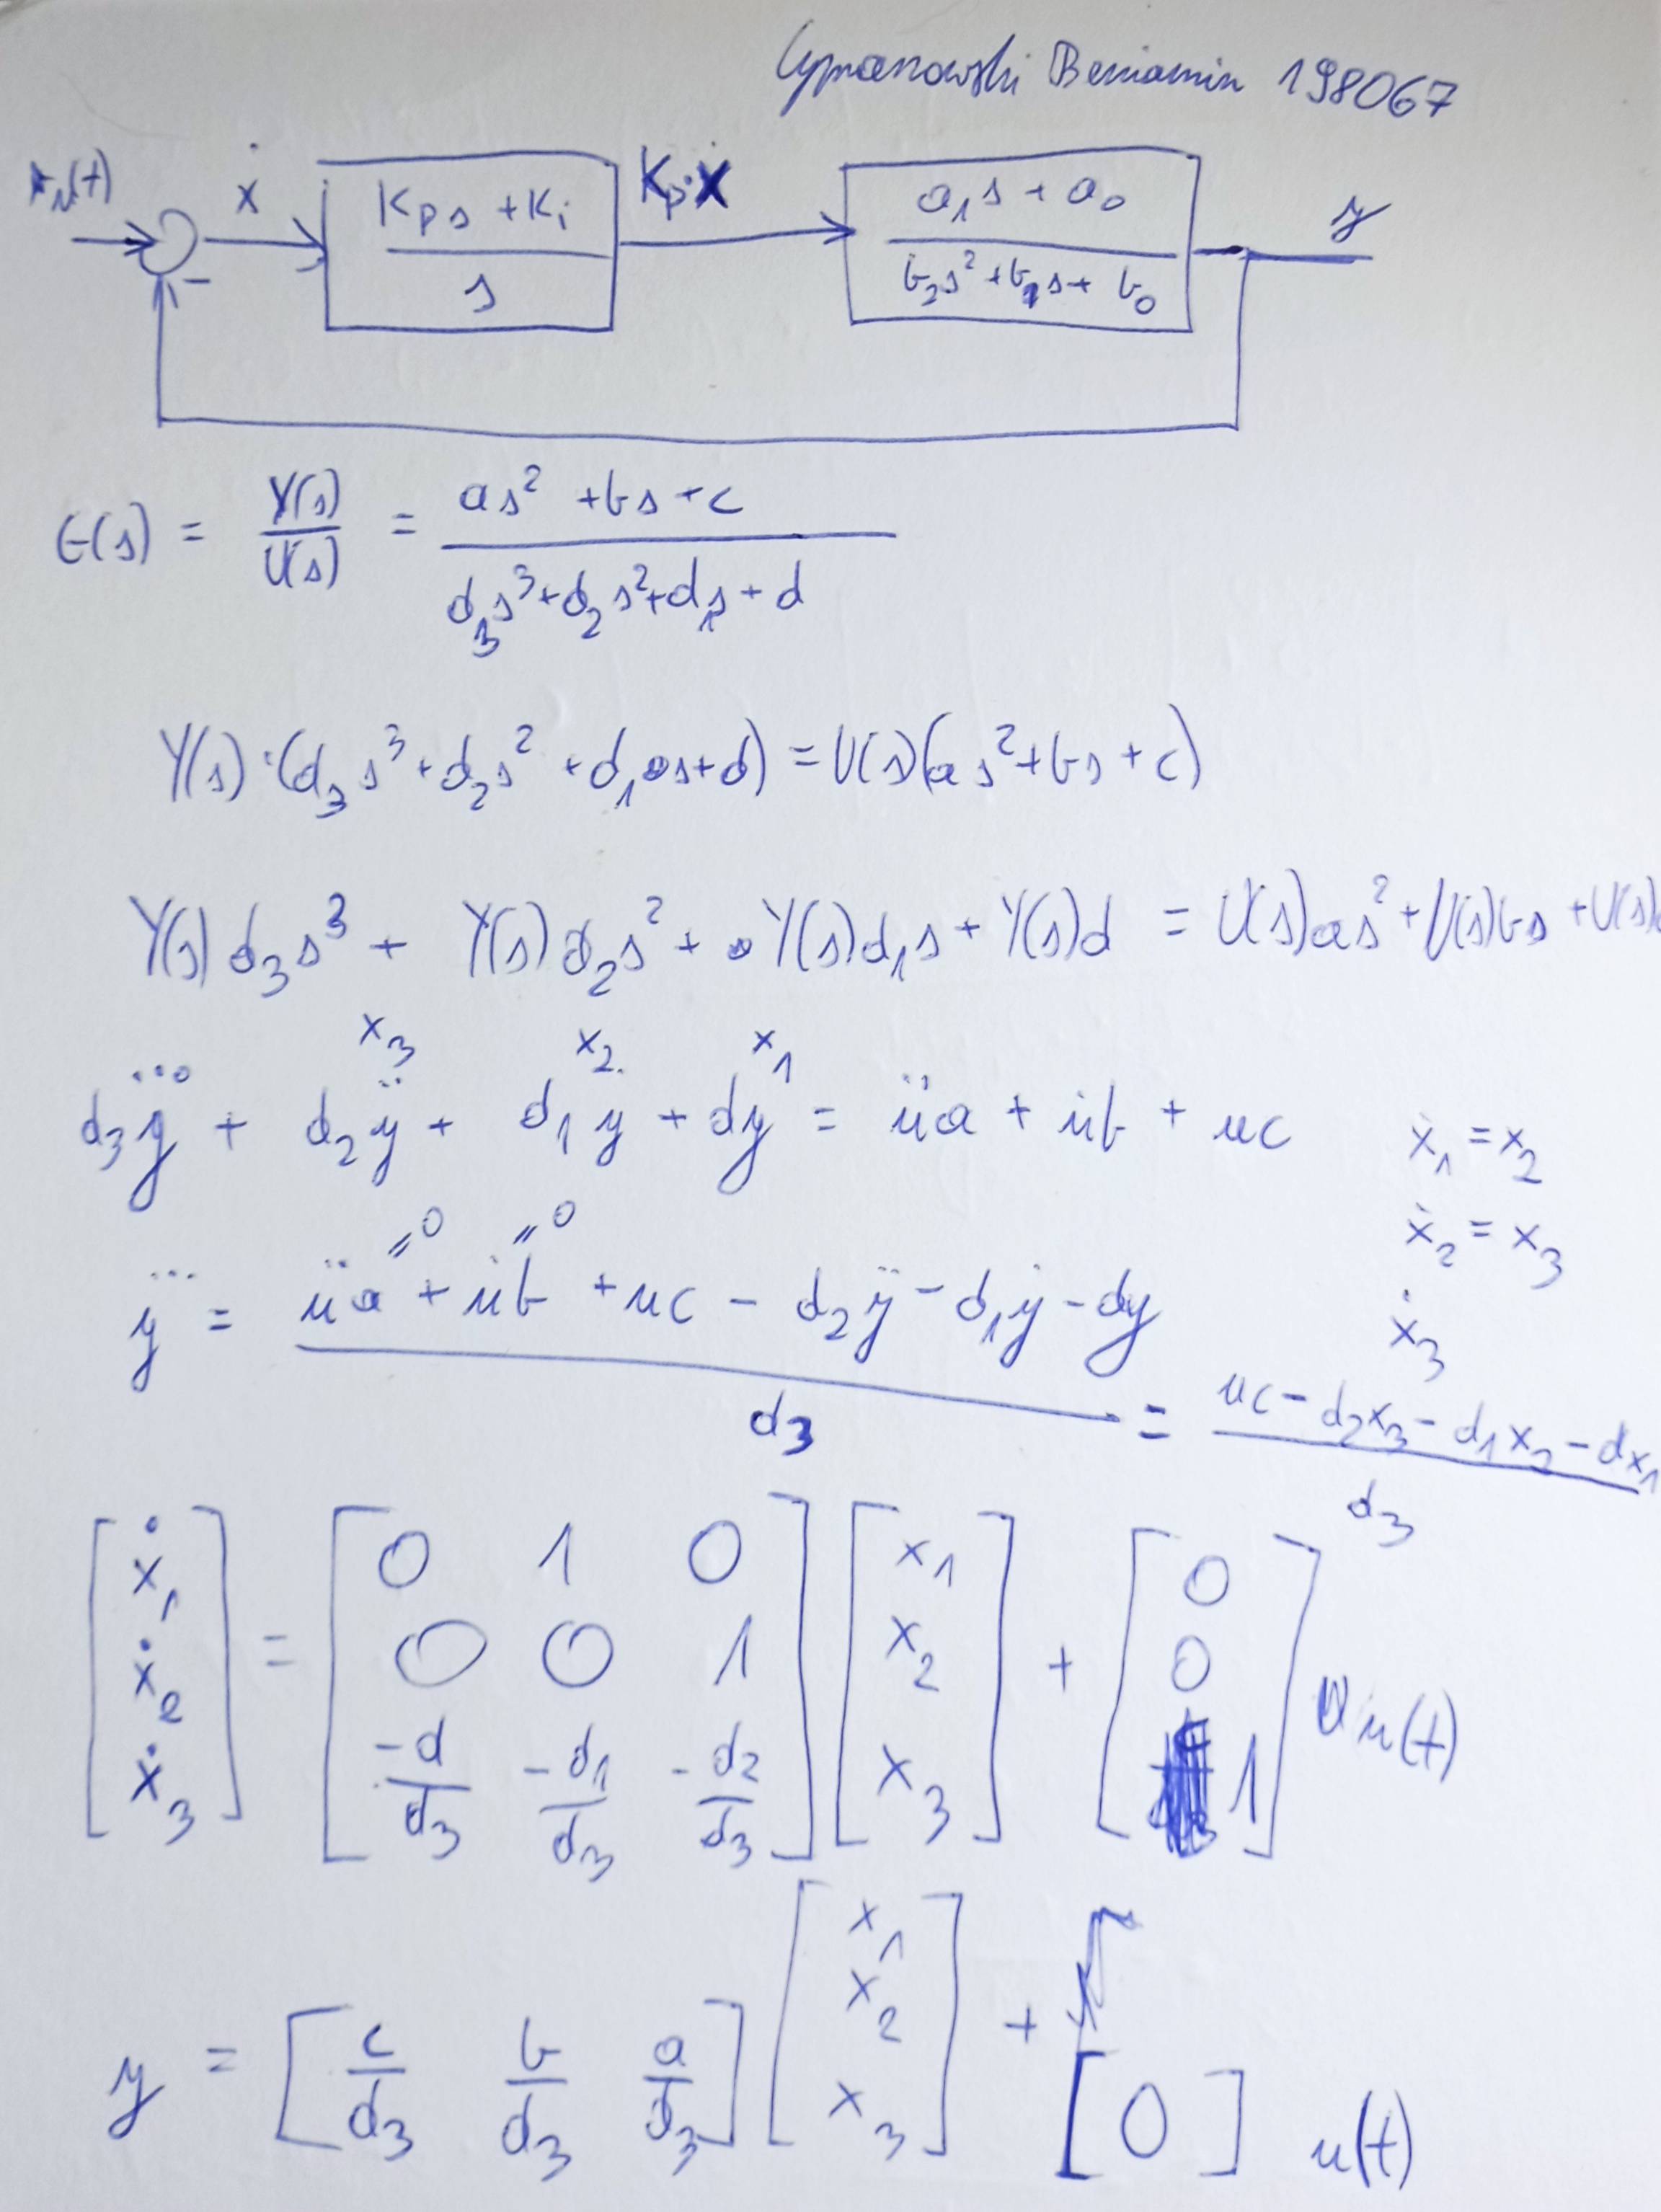 Beniamin 198067
u(t) ẋ (Kp s + Ki)/s Kp·x (a₁s + a₀)/(b₂s² + b₁s + b₀) y
−
G(s) = Y(s)/U(s) = (as² + bs + c)/(d₃s³ + d₂s² + d₁s + d)
Y(s)·(d₃s³ + d₂s² + d₁s + d) = U(s)(as² + bs + c)
Y(s)d₃s³ + Y(s)d₂s² + Y(s)d₁s + Y(s)d = U(s)as² + U(s)bs + U(s)
x₃ x₂ x₁
d₃y⃛ + d₂ÿ + d₁ẏ + dy = üa + u̇b + uc
ẋ₁ = x₂
ẋ₂ = x₃
ẋ₃
=0 =0
y⃛ = (üa + u̇b + uc − d₂ÿ − d₁ẏ − dy)/d₃ = (uc − d₂x₃ − d₁x₂ − dx₁)/d₃
[ẋ₁ ẋ₂ ẋ₃] = [0 1 0; 0 0 1; −d/d₃ −d₁/d₃ −d₂/d₃] [x₁ x₂ x₃] + [0 0 1] u(t)
y = [c/d₃ b/d₃ a/d₃] [x₁ x₂ x₃] + [0] u(t)